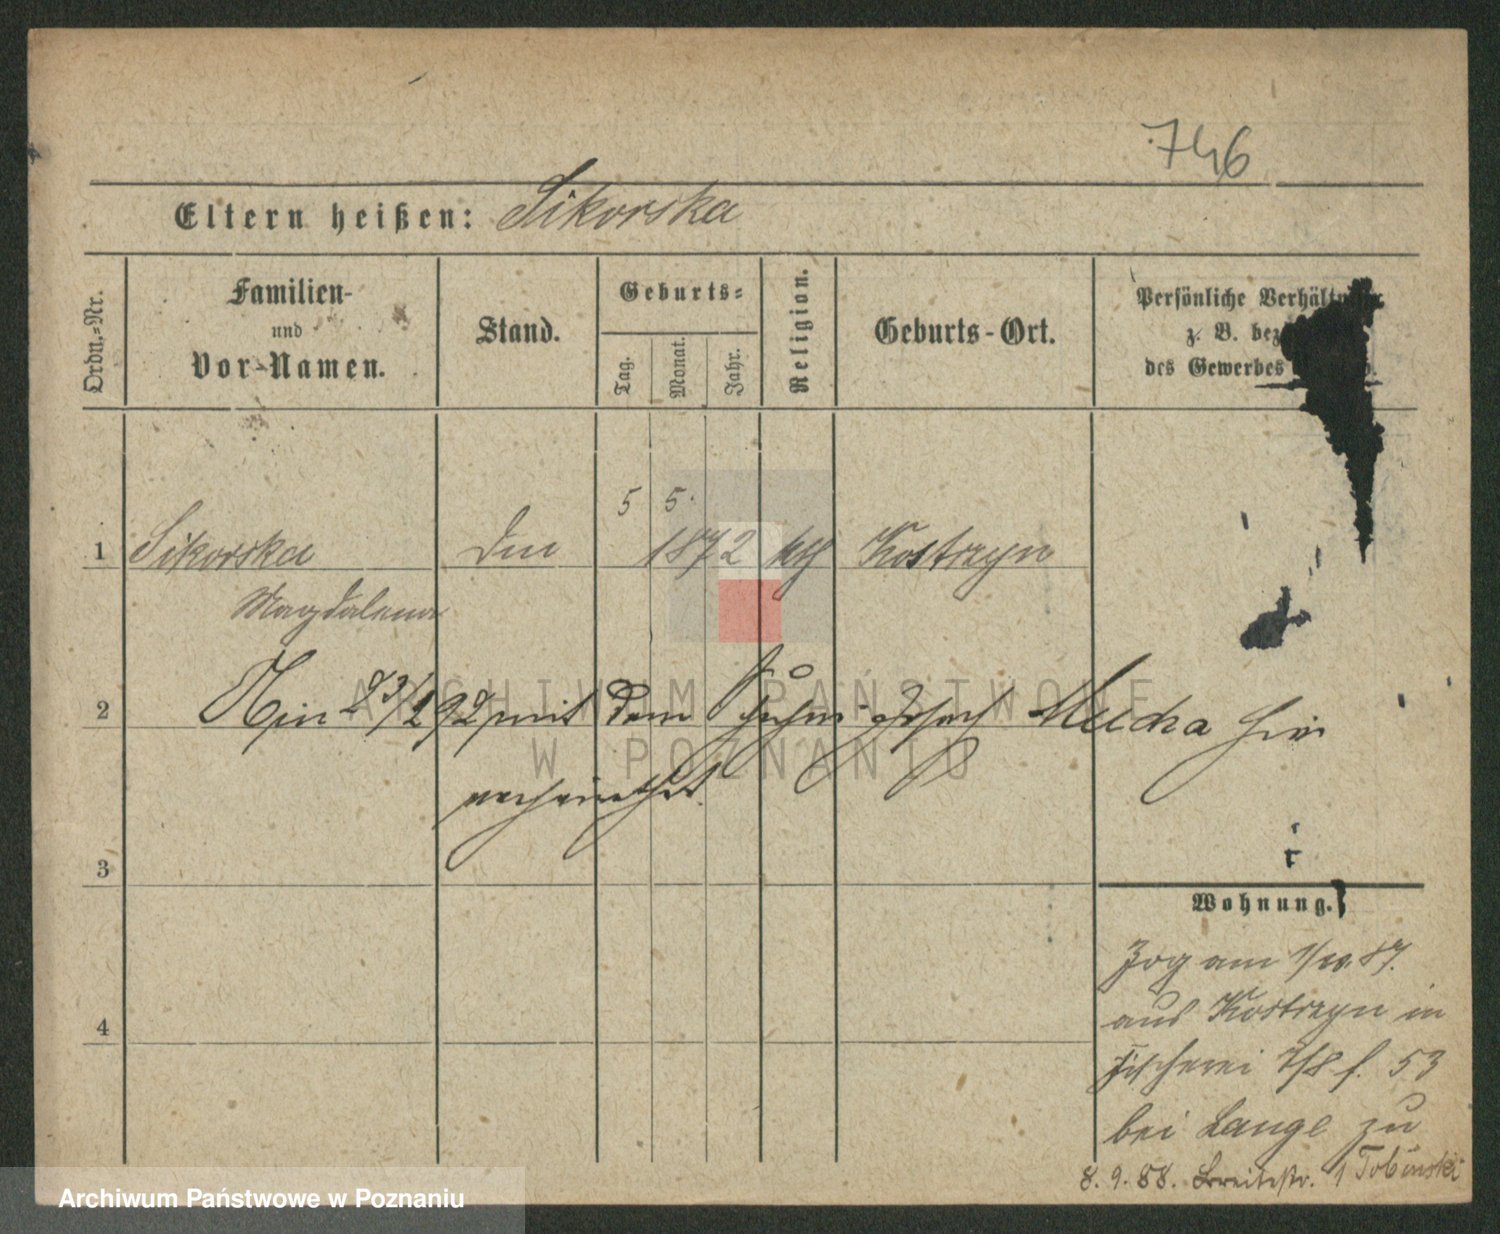 746
Eltern heißen: Sikorska
Ordn.-Nr.
Familien-
und
Vor-Namen.
Stand.
Geburts-
Tag.
Monat.
Jahr.
Religion.
Geburts-Ort.
Persönliche
z. B.
des Gewerbes
5 5.
1 Sikorska 1872 Kostrzyn
Magdalena
2 23/2 92 mit dem Mucha hier
verheirathet.
3
Wohnung.
Zog am 1/10.87.
aus Kostrzyn in
4
Fischerei 7/8 f. 53
bei Lange zu
8.9.88. Breitestr. 1 Tobinski
ARCHIWUM PAŃSTWOWE
W POZNANIU
Archiwum Państwowe w Poznaniu